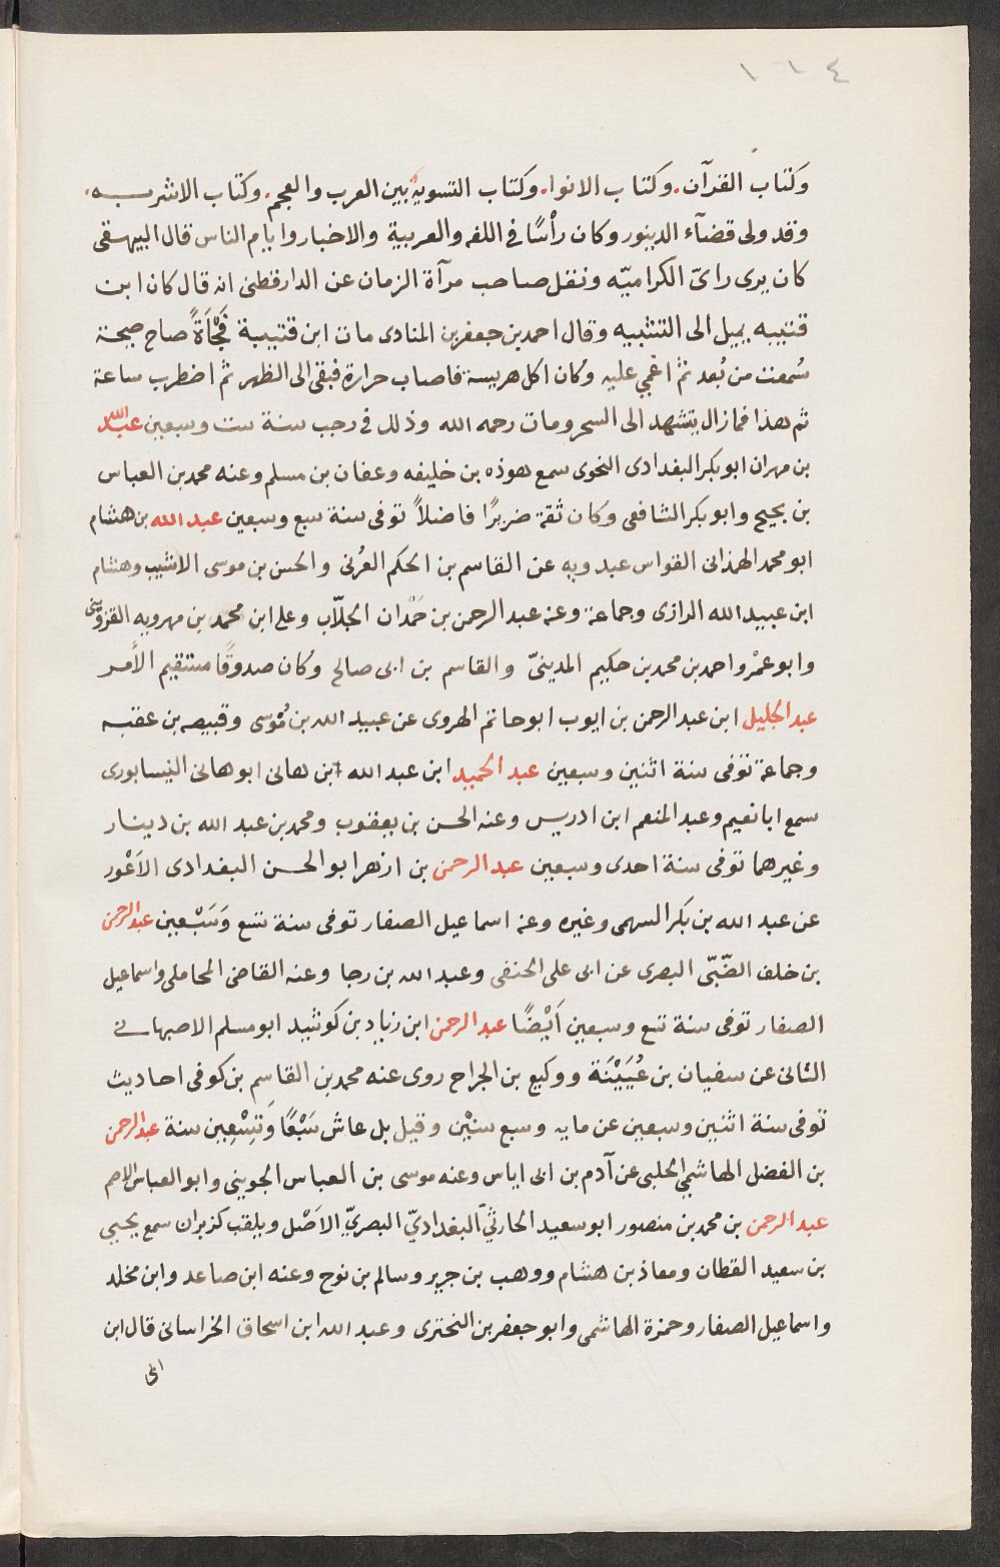 ١١٤
وكتاب القرآن. وكتاب الانوا. وكتاب التسوية بين العرب والعجم. وكتاب الاشربه.
وقد ولى قضآء الدينور وكان رأسًا في اللغه والعربية والاخبار وايام الناس قال البيهقى
كان يرى راىَ الكراميّه ونقل صاحب مرآة الزمان عن الدارقطنى انه قال كان ابن
قتيبه يميل الى التشبيه وقال احمد بن جعفر بن المنادى مات ابن قتيبة فجْأَةً صاح صيحة
سُمعت من بُعد ثمّ اغمي عليه وكان اكل هريسة فاصاب حرارة فبقى الى الظهر ثمّ اضطرب ساعة
ثم هذا فما زال يتشهد الى السحر ومات رحمه الله وذلك في رجب سنة ست وسبعين عبد الله
بن مهران ابو بكر البغدادى النحوى سمع هوذه بن خليفه وعفان بن مسلم وعنه محمد بن العباس
بن نجيح وابو بكر الشافعى وكان ثقة ضريرًا فاضلاً توفى سنة سبع وسبعين عبد الله بن هشام
ابو محمد الهمذانى القواس عبدويه عن القاسم بن الحكم العُرنى والحسن بن موسى الاشيب وهشام
ابن عبيد الله الرازى وجماعة وعنه عبد الرحمن بن حَمْدان الجلّاب وعلى ابن محمد بن مهرويه القزوينى
وابو عمْرو احمد بن محمد بن حكيم المدينىّ والقاسم بن ابى صالح وكان صدوقًا مستقيم الأمر
عبد الجليل ابن عبد الرحمن بن ايوب ابو حاتم الهروى عن عبيد الله بن مُوسى وقبيصه بن عقبه
وجماعة توفى سنة اثنين وسبعين عبد الحميد ابن عبد الله ابن هانى ابو هانى النيسابورى
سمع ابا نعيم وعبد المنعم ابن ادريس وعنه الحسن بن يعقوب ومحمد بن عبد الله بن دينار
وغيرهما توفى سنة احدى وسبعين عبد الرحمن بن ازهر ابو الحسن البغدادى الاَعْور
عن عبد الله بن بكر السهمى وغيره وعنه اسماعيل الصفار توفى سنة تسع وَسَبْعين عبد الرحمن
بن خلف الضّبّى البصرى عن ابى على الحنفى وعبد الله بن رجا وعنه القاضى المحاملى واسماعيل
الصفار توفى سنة تسع وسبعين اَيْضًا عبد الرحمن ابن زياد بن كوشيد ابو مسلم الاصبهانى
الثانى عن سفيان بن عُيَيْنَة ووكيع بن الجراح روى عنه محمد بن القاسم بن كوفى احاديث
توفى سنة اثنين وسبعين عن مايه وسبع سنيْن وقيل بل عاش سَبْعًا وَتِسْعِين سنة عبد الرحمن
بن الفضل الهاشمى الحلبى عن آدم بن ابى اياس وعنه موسى بن العباس الجوينى وابو العباس الاصم
عبد الرحمن بن محمد بن منصور ابو سعيد الحارثيّ البغداديّ البصريّ الاَصْل ويلقب كزبران سمع يحيى
بن سعيد القطان ومعاذ بن هشام ووهب بن جرير وسالم بن نوح وعنه ابن صاعد وابن مخلد
واسماعيل الصفار وحمزة الهاشمى وابو جعفر بن البخترى وعبد الله ابن اسحاق الخراسانى قال ابن
ابى